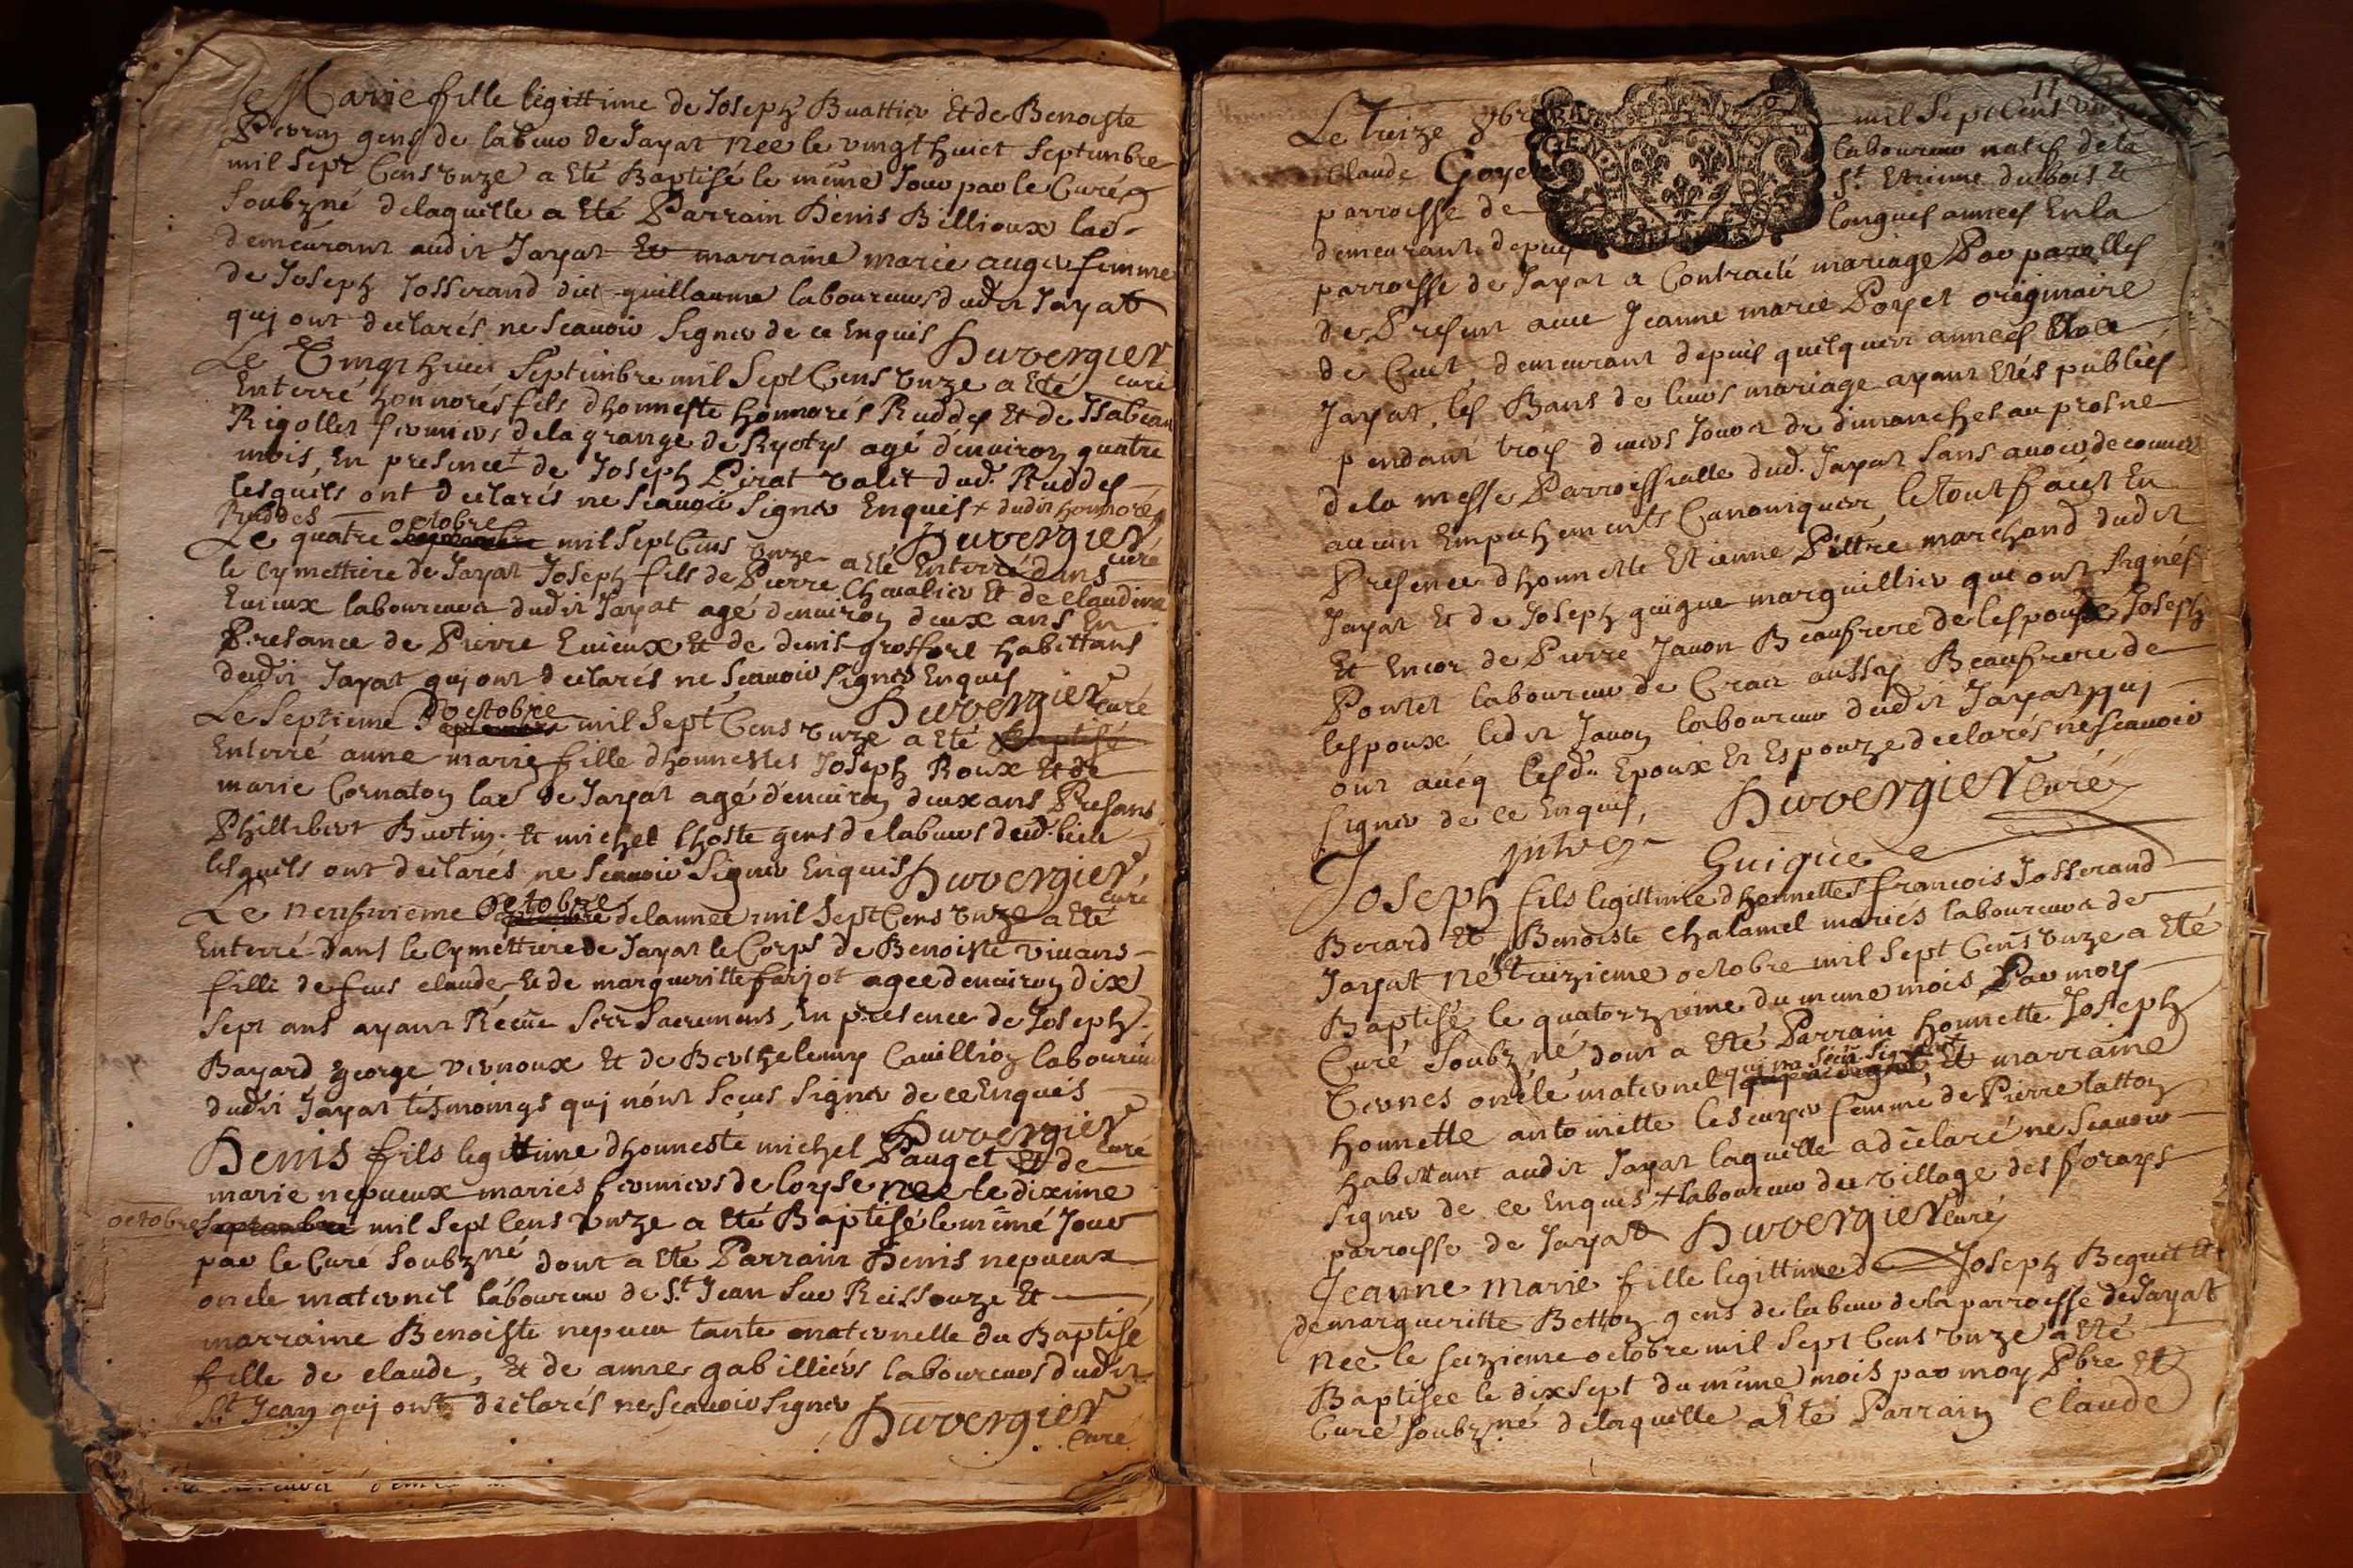 Marie fille legittime de Joseph Buattier Et de Benoiste
Perrin gens de labeur de Jayat née le vingt huict Septembre
mil Sept Cens Unze a Eté Baptisé le même Jour par le Curé
Soubzné delaquelle a Eté Parrain Denis Billioux lab.
demeurant audit Jayat Et marraine marie auger femme
de Joseph Josserand dict guillaume laboureurs dudit Jayat
quj ont declarés ne Scauoir Signer de ce Enquis Duvergier
curé
Le Vingt huict Septembre mil Sept Cens Unze a Eté
Enterré honnorés fils dhonneste honnorés Ruddes Et de Isabeau
Rigollet fermiers dela grange de Ryotys agé denuiron quatre
mois, En presence + de Joseph Pirat valet dud. Ruddes
lesquels ont declarés ne Scauoir Signer Enquis + dudit honnorés
Ruddes Duvergier
curé
Le quatre octobre mil Sept Cens Unze a Eté Enterré dans
le Cymettiere de Jayat Joseph fils de Pierre Chevalier Et de Claudine
Euieux laboureurs dudit Jayat agé denuiron deux ans En
Presance de Pierre Euieux Et de denis grosfort habittans
dudit Jayat quj ont declarés ne Scauoir Signer Enquis
Duvergier curé
Le Septieme octobre mil Sept Cens Unze a Eté
Enterré anne marie fille dhonnestes Joseph Roux Et de
marie Cornaton lab. de Jayat agé denuiron deux ans Presans
Phillibert Burtin Et michel lhoste gens de labeurs dud. lieu
lesquels ont declarés ne Scauoir Signer Enquis Duvergier
curé
Le neufvieme Octobre delannée mil Sept Cens Unze a Eté
Enterré dans le Cymettiere de Jayat le Corps de Benoiste Viuans
fille de feus claude Et de margueritte farjot agée denuiron dix
Sept ans ayant Receue Ses Sacremens, En presence de Joseph
Bayard george vernoux Et de Berthelemy Cauillion laboureurs
dudit Jayat tesmoings quj nont Sceus Signer de ce Enquis
Duvergier
curé
Denis fils legittime dhonneste michel Pauget Et de
marie nepueux mariés fermiers de loyse née le dixime
octobre mil Sept Cens Unze a Eté Baptisé le même Jour
par le Curé Soubzné dont a Eté Parrain Denis nepueux
oncle maternel laboureur de St. Jean Sur Reissouze Et
marraine Benoiste nepueu tante maternelle du Baptisé
fille de claude, Et de anne gabilliers laboureurs dudit
St Jean quj ont declarés ne Scauoir Signer
Duvergier
Curé
11
Le treize 8bre mil Sept Cens
Claude Goye laboureur natif dela
parroisse de St. Etienne du bois Et
demeurant depuis longues années En la
parroisse de Jayat a Contracté mariage Par parolles
de Present auec Jeanne marie Poyet originaire
de Cuet, demeurant depuis quelques années
Jayat, les Bans de leurs mariage ayant Etés publiés
pendant troys diuers Jours de dimanches au prosne
dela messe Parroissialle dud. Jayat Sans auoir decouuert
aucun Empechements Canoniques, le tout faict En
Presence dhonneste Etienne Pittre marchand dudit
Jayat Et de Joseph guigue marguillier qui ont Signés
Et Encor de Pierre Jauon Beaufrere de lespouse Joseph
Pontet laboureur de Cras aussy Beaufrere de
lespoux ledit Jauon laboureur dudit Jayat quj
ont auecq lesd. Epoux Et Espouze declarés ne Scauoir
Signer de ce Enquis, Duvergier Curé
Guigue
Joseph fils legittime dhonnettes francois Josserand
Berard Et Benoiste Chalamel mariés laboureurs de
Jayat né le traizieme octobre mil Sept Cens Unze a Eté
Baptisé le quatorzieme du meme mois Par moy
Curé Soubzné, dont a Eté Parrain honnette Joseph
oncle maternel qui na Sceu Signer, Et marraine
honnette antoinette lescuyer femme de Pierre latton
habittant audit Jayat laquelle a declaré ne Scauoir
Signer de ce Enquis + laboureur du village des forays
parroisse de Jayat Duvergier Curé
Jeanne Marie fille legittime de Joseph Beguet Et
de margueritte Betton gens de labeur dela parroisse de Jayat
née le seizieme octobre mil Sept Cens Unze a Eté
Baptisee le dixsept du même mois par moy Pbre Et
Curé Soubzné delaquelle a Eté Parrain Claude